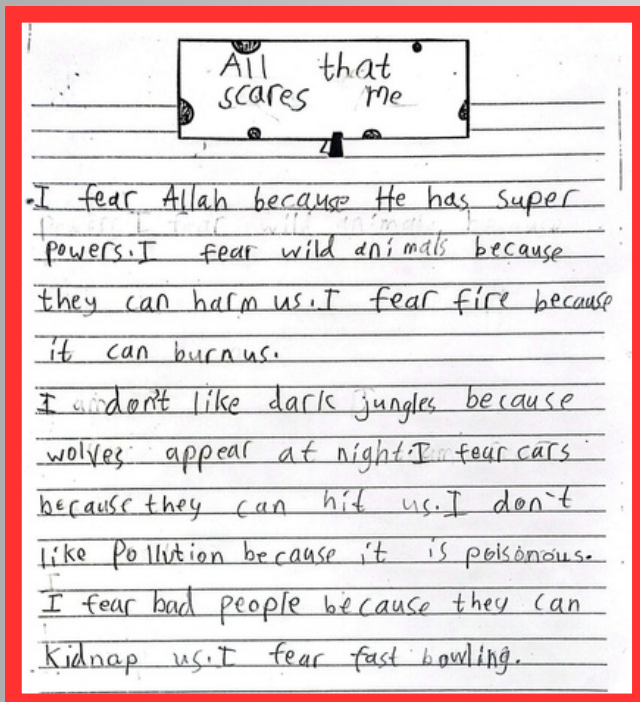 All that
scares me
I fear Allah because He has super
powers.I fear wild animals because
they can harm us.I fear fire because
it can burn us.
I don't like dark jungles because
wolves appear at night.I fear cars
because they can hit us.I don't
like Pollution because it is poisonous.
I fear bad people because they can
Kidnap us.I fear fast bowling.